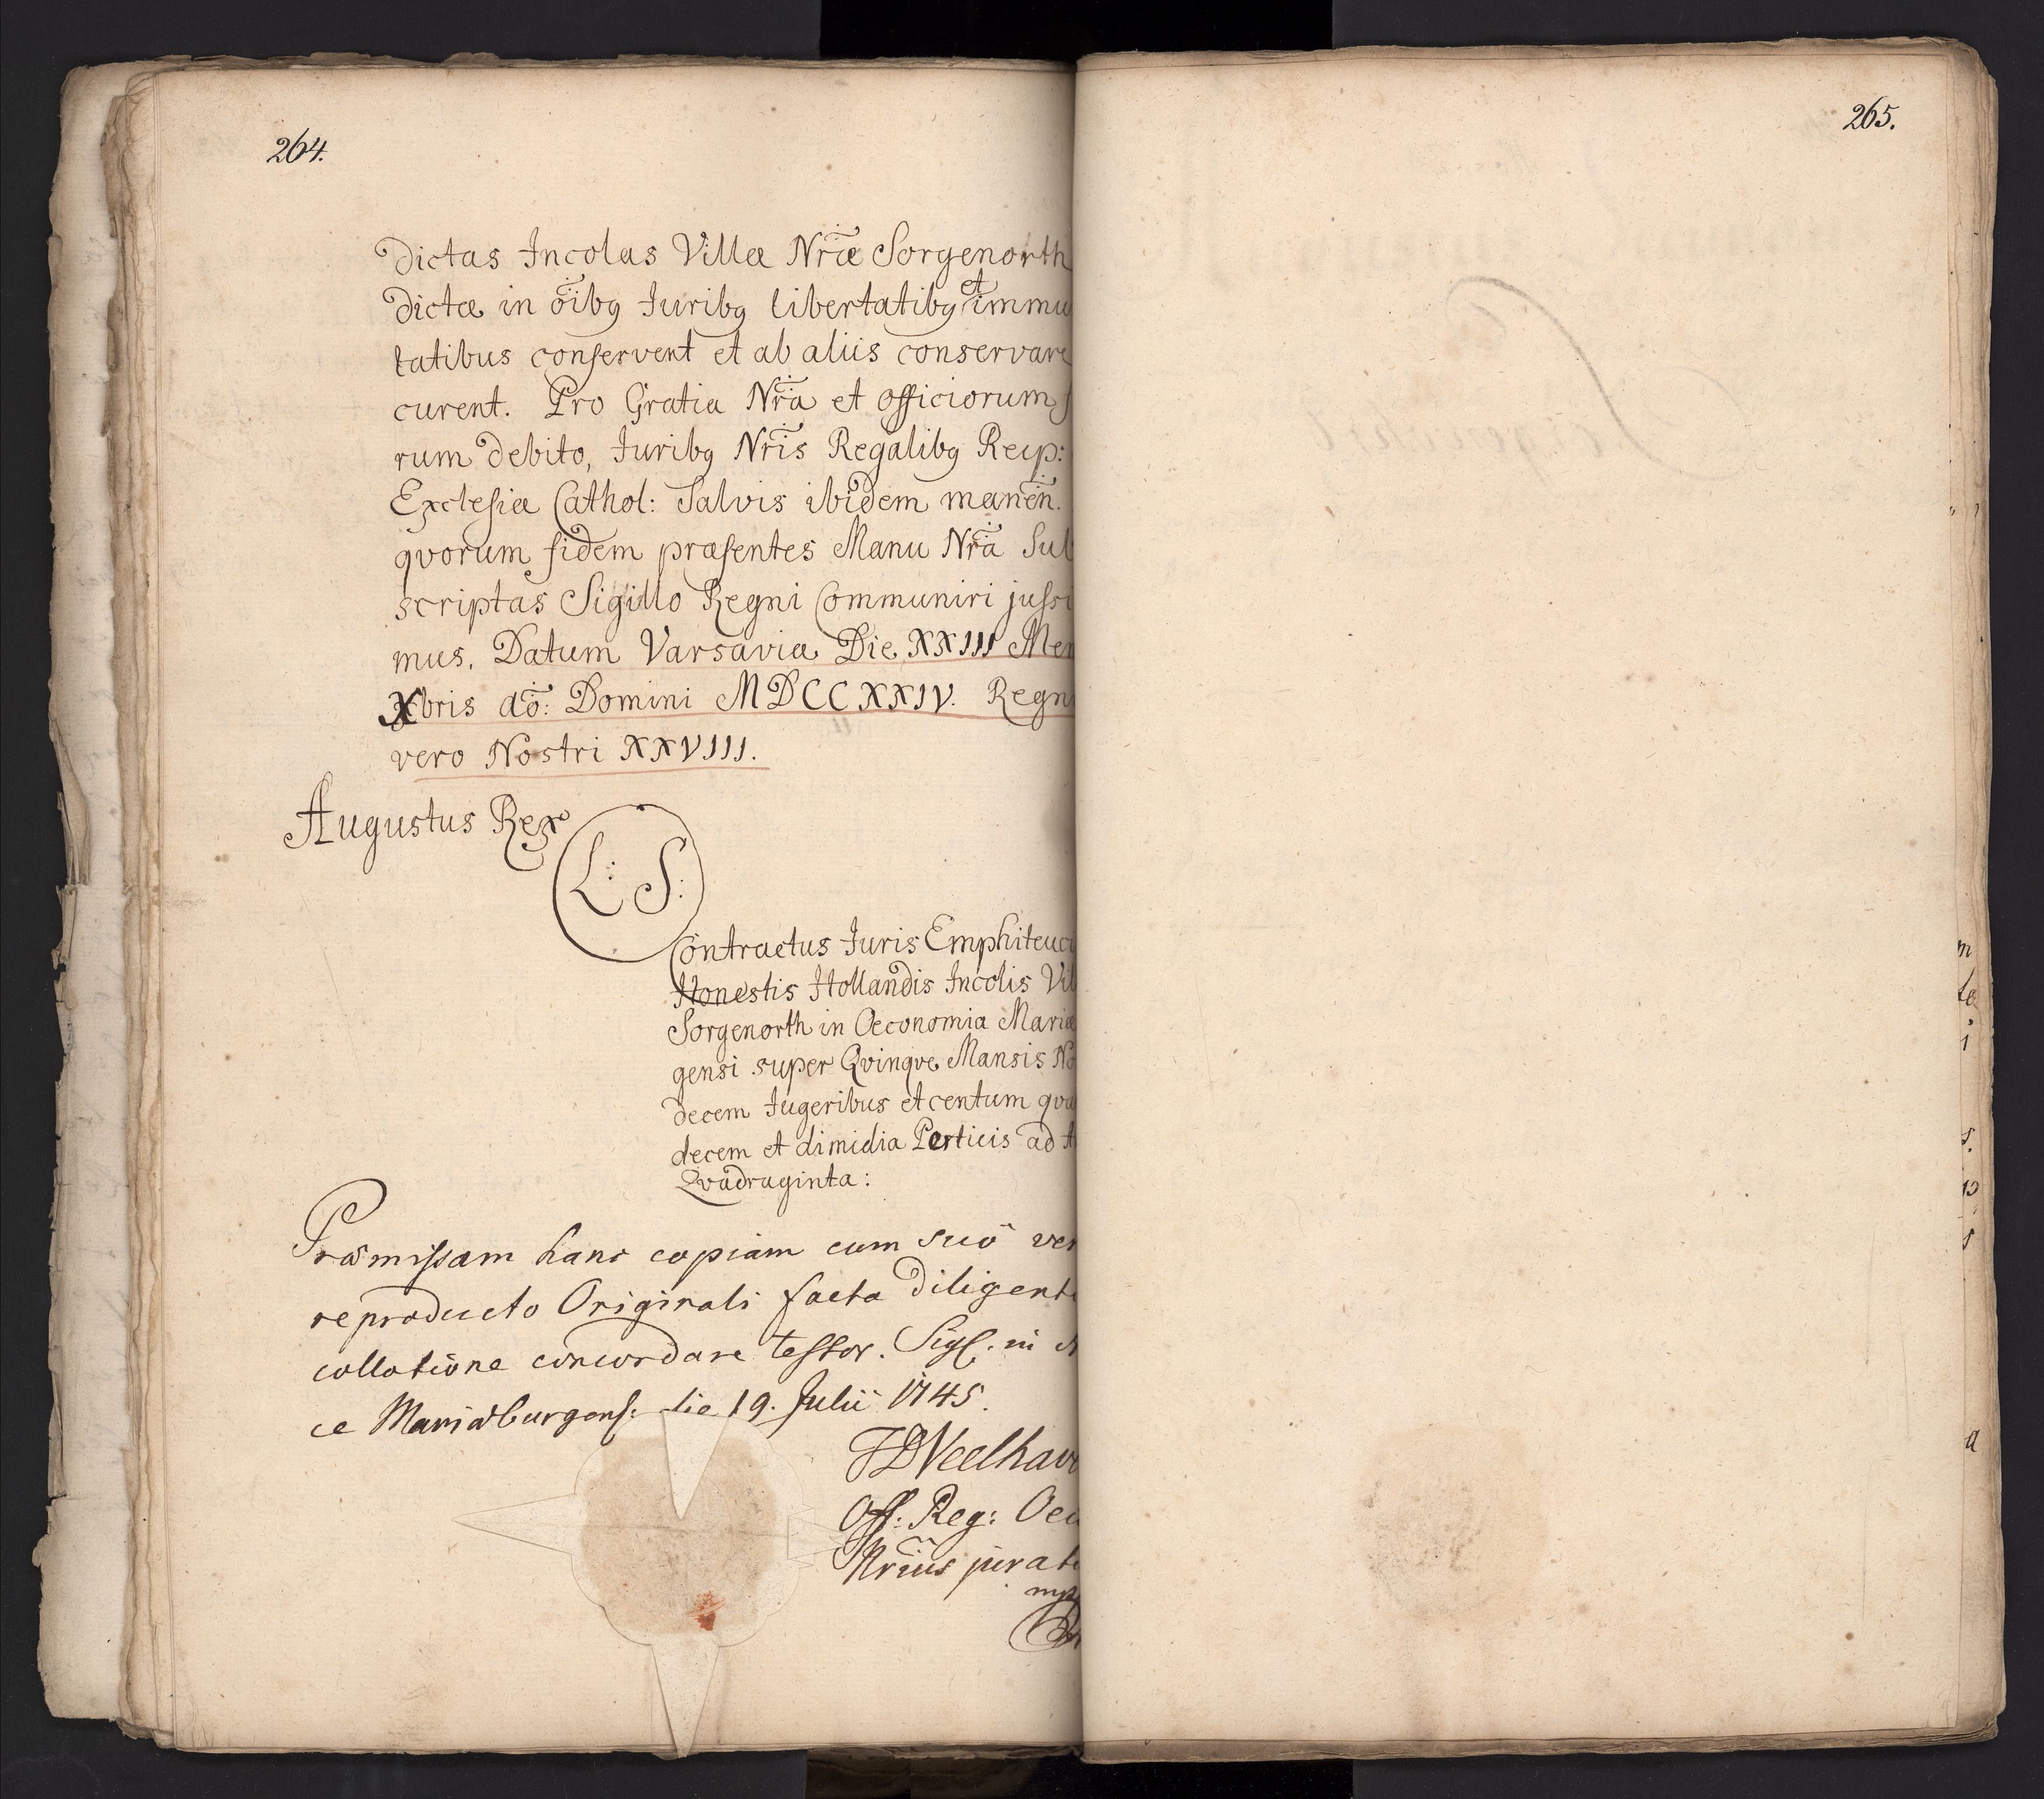 264.
dictas Incolas Villæ Nr̃æ Sorgenorth
dictæ in õibq Juribq libertatibq et immu
tatibus conservent et ab aliis conservare
curent. Pro Gratia Nr̃a et officiorum
rum debito, Juribq Nr̃is Regalibq Reip:
Ecclesiæ Cathol: Salvis ibidem manen̄.
qvorum fidem præsentes Manu Nr̃a Sub
scriptas Sigillo Regni Communiri jussi
mus. Datum Varsaviæ Die XXIII Men
Xbris aō: Domini MDCCXXIV. Regni
vero Nostri XXVIII.
Augustus Rex
L: S:
Contractus Juris Emphiteuci
Honestis Hollandis Incolis Vil
Sorgenorth in Oeconomia Mariæ
gensi super Qvinqve Mansis No
decem Jugeribus et centum qva
decem et dimidia Perticis ad A
Qvadraginta:
Præmissam hanc copiam cum suo ver
reproducto Originali facta diligenti
collatione concordare testor. Sigl. in A
ce Mariæburgens: die 19. Julii 1745.
Off: Reg: Oec
Nrius jurat
mp
265.